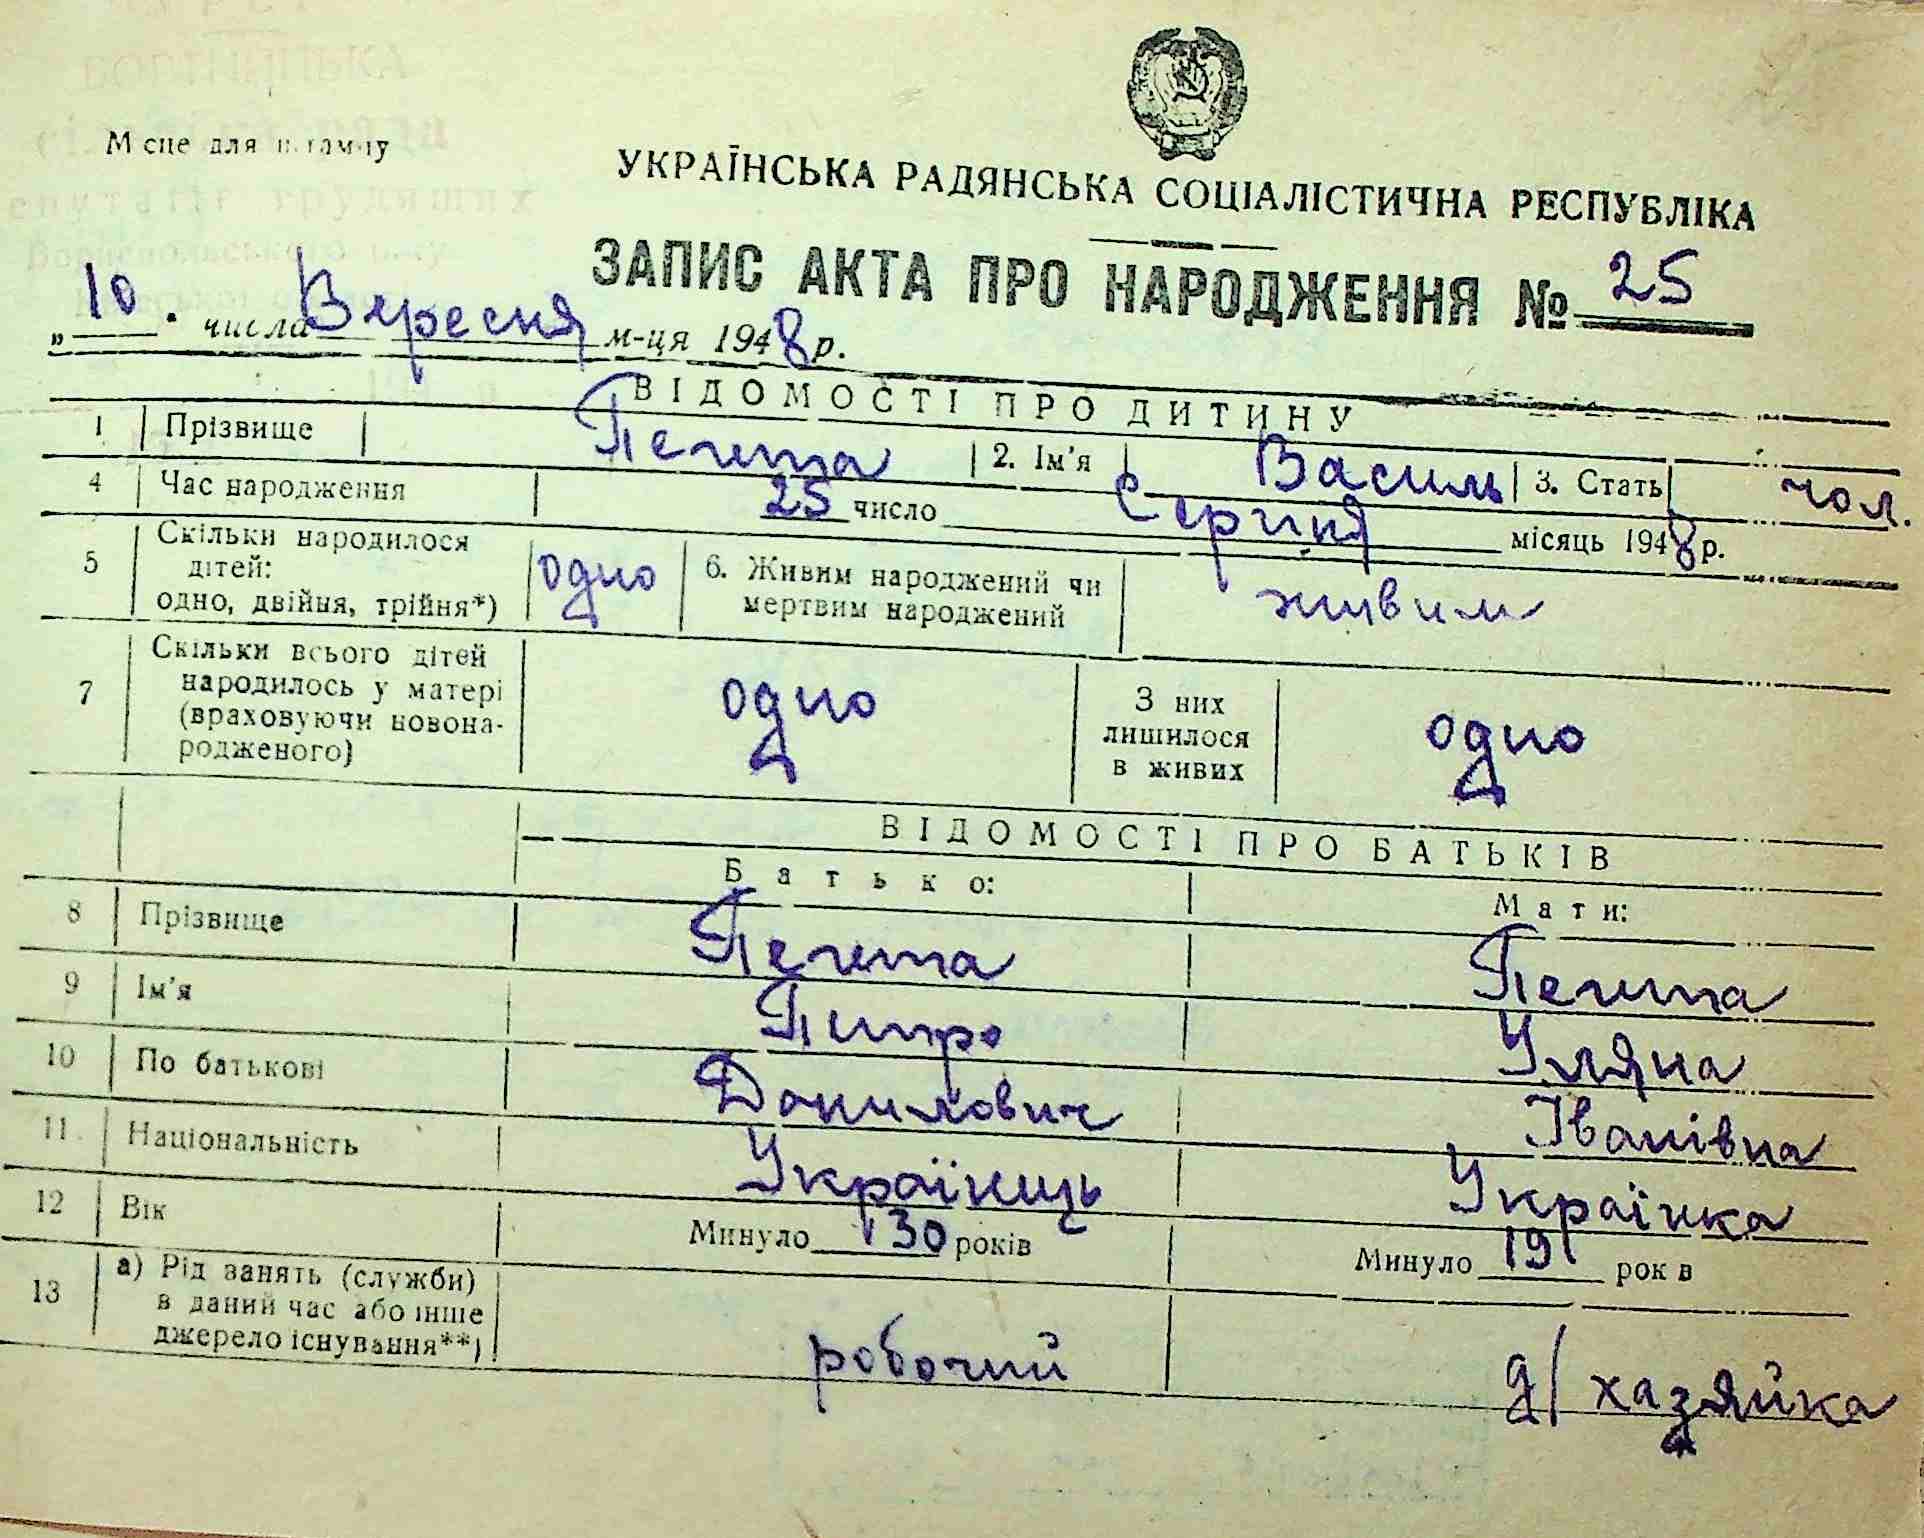 Місце для штампу
УКРАЇНСЬКА РАДЯНСЬКА СОЦІАЛІСТИЧНА РЕСПУБЛІКА
ЗАПИС АКТА ПРО НАРОДЖЕННЯ № 25
„10. числа Вересня м-ця 1948 р.
ВІДОМОСТІ ПРО ДИТИНУ
1 Прізвище Печета 2. Ім'я Василь 3. Стать чол.
4 Час народження 25 число Серпня місяць 1948 р.
5 Скільки народилося
дітей:
одно, двійня, трійня*) одно 6. Живим народжений чи
мертвим народжений живим
7 Скільки всього дітей
народилось у матері
(враховуючи новона-
родженого) одно З них
лишилося
в живих одно
ВІДОМОСТІ ПРО БАТЬКІВ
Батько: Мати:
8 Прізвище Печета Печета
9 Ім'я Питро Уляна
10 По батькові Данилович Іванівна
11. Національність Українець Українка
12 Вік Минуло 30 років Минуло 19 рок в
13 а) Рід занять (служби)
в даний час або інше
джерело існування**) робочий д/хазяйка